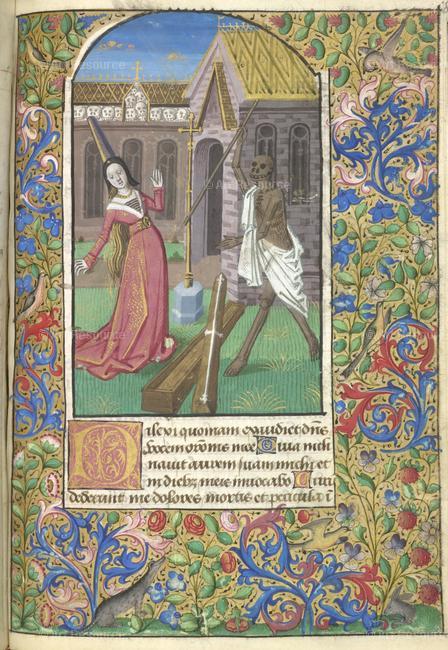 Dilexi quoniam exaudiet dns
vocem oronis mee Quia incli
nauit aurem suam michi et
in diebz meis inuocabo Circū
dederunt me dolores mortis et pericula ī